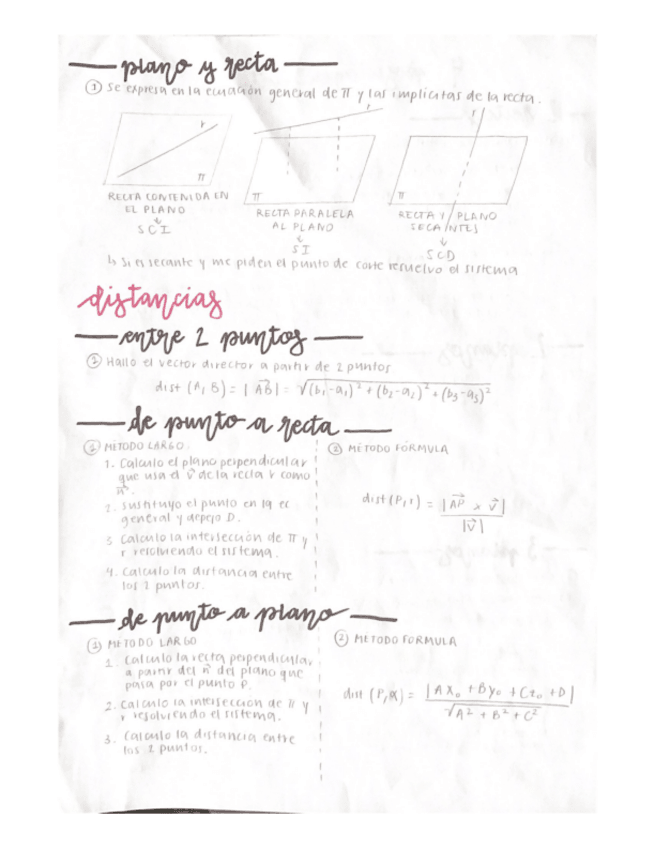 plano y recta
① Se expresa en la ecuación general de π y las implícitas de la recta.
r
π
RECTA CONTENIDA EN
EL PLANO
↓
SCI
r
π
RECTA PARALELA
AL PLANO
↓
SI
r
π
RECTA Y PLANO
SECANTES
↓
SCD
↳ Si es secante y me piden el punto de corte resuelvo el sistema
distancias
entre 2 puntos
① Hallo el vector director a partir de 2 puntos.
dist (A, B) = |AB⃗| = √(b₁-a₁)² + (b₂-a₂)² + (b₃-a₃)²
de punto a recta
① MÉTODO LARGO
1. Calculo el plano perpendicular
que usa el v⃗ de la recta r como
n⃗.
2. Sustituyo el punto en la ec
general y despejo D.
3. Calculo la intersección de π y
r resolviendo el sistema.
4. Calculo la distancia entre
los 2 puntos.
② MÉTODO FÓRMULA
dist (P, r) = |AP⃗ x v⃗| / |v⃗|
de punto a plano
① MÉTODO LARGO
1. Calculo la recta perpendicular
a partir del n⃗ del plano que
pasa por el punto P.
2. Calculo la intersección de π y
r resolviendo el sistema.
3. Calculo la distancia entre
los 2 puntos.
② MÉTODO FÓRMULA
dist (P, π) = |Ax₀ + By₀ + Cz₀ + D| / √A² + B² + C²